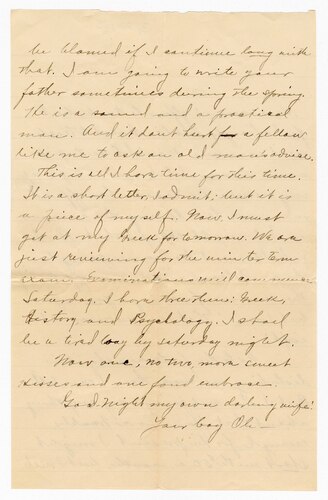 be blamed if I continue long with
that. I am going to write your
father sometimes during the spring.
He is a sound and a practical
man. And it dont hurt for a fellow
like me to ask an old man's advise.
This is all I have time for this time.
It is a short letter, I admit; but it is
a piece of myself. Now I must
get at my Greek for tomorrow. We are
just reviewing for the winter term
exam. Examinations will commence
Saturday. I have three then: Greek,
History and Psychology. I shall
be a tired boy by saturday night.
Now one, no two, more sweet
kisses and one fond embrase.
God Night my own darling wife!
Your boy Ole